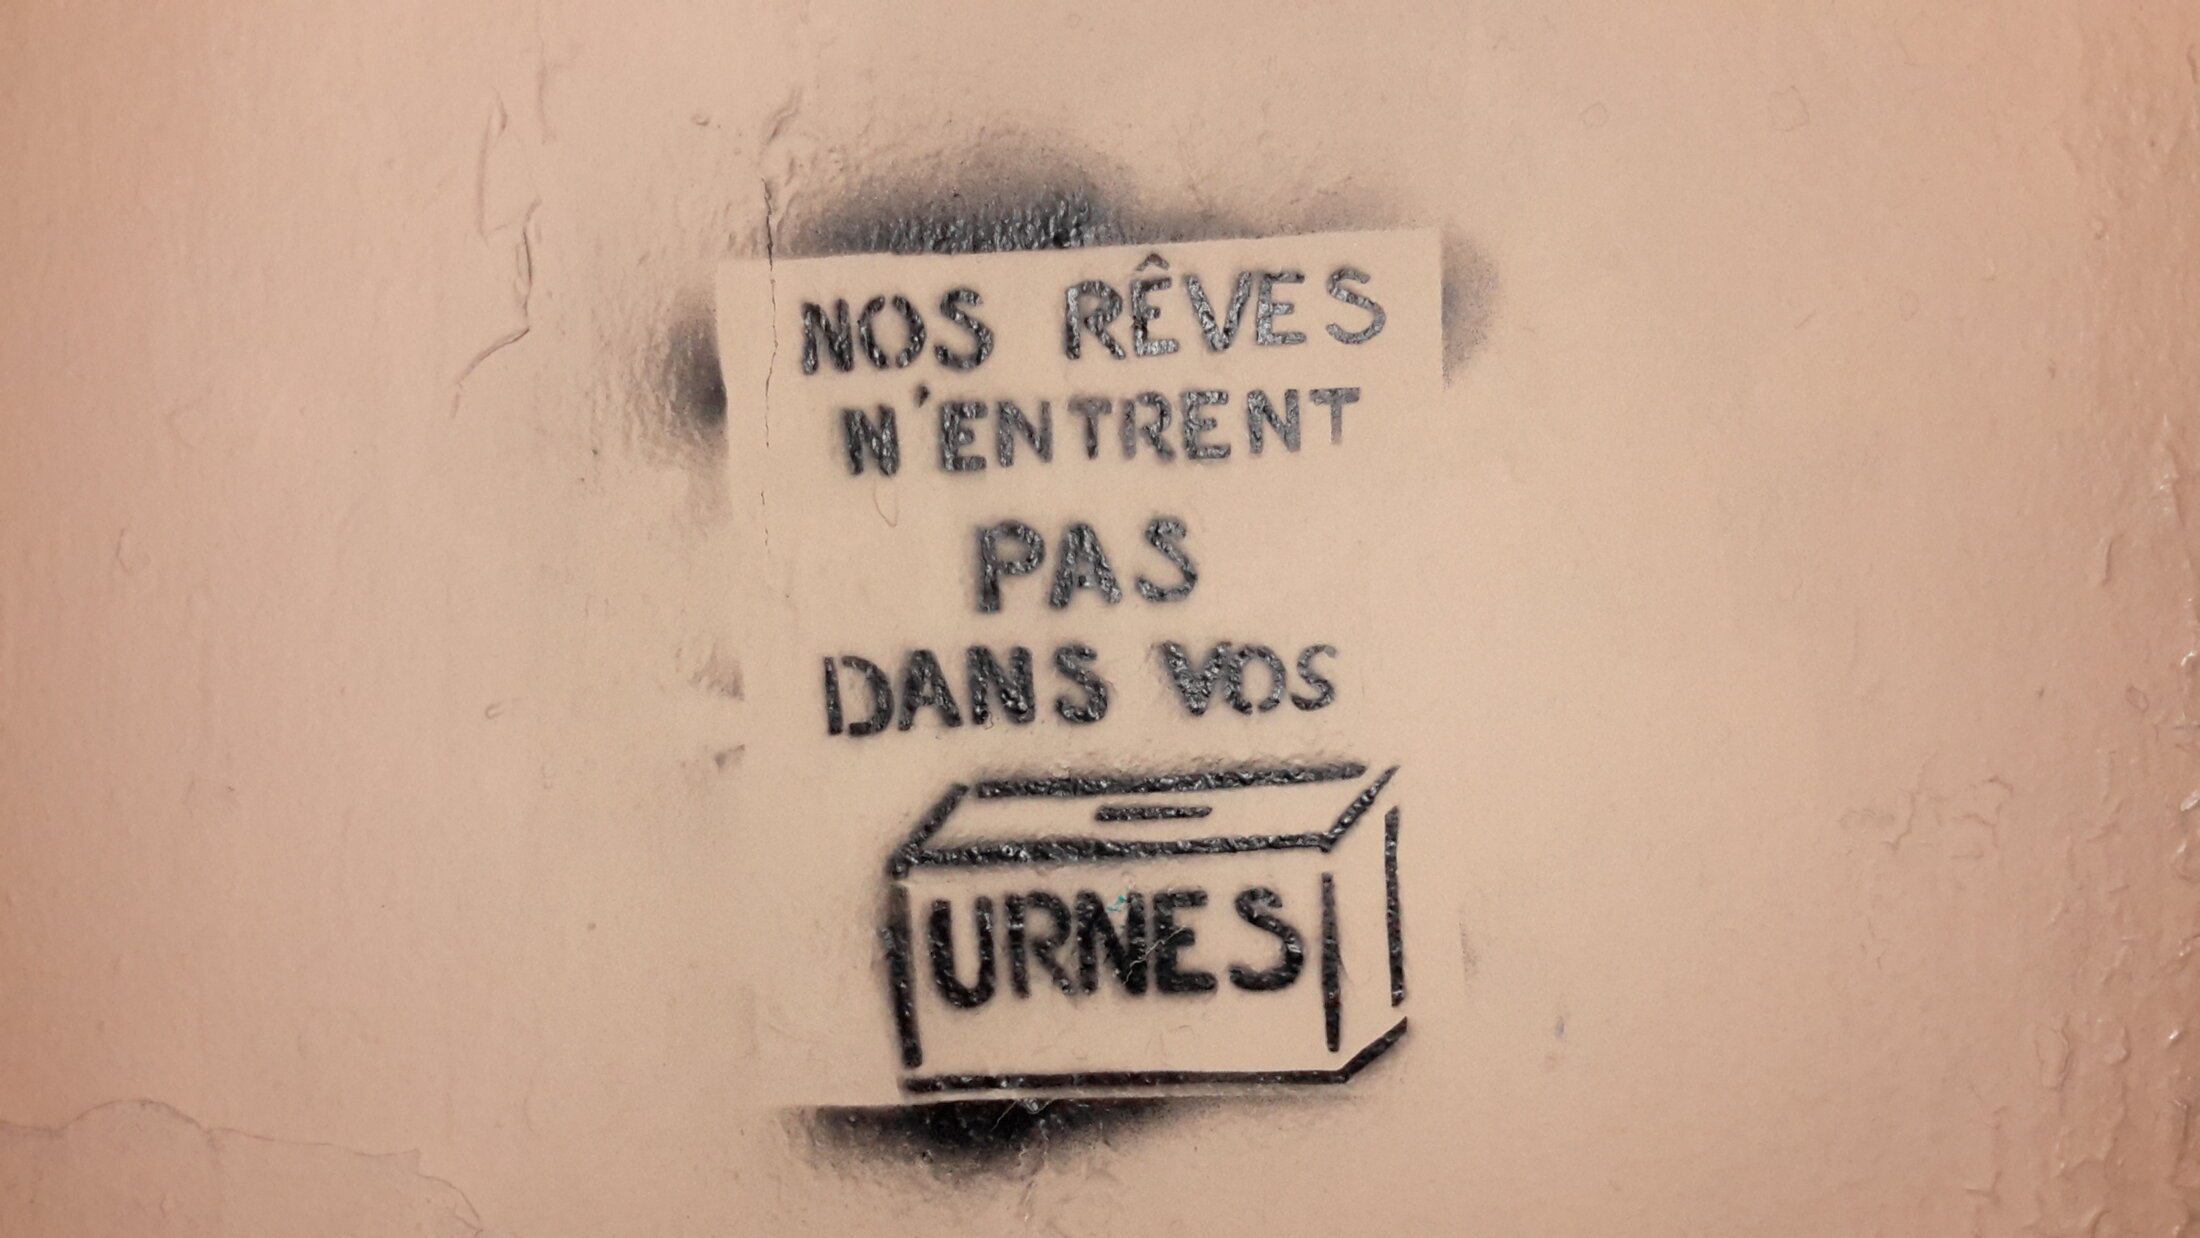 NOS RÊVES
N'ENTRENT
PAS
DANS VOS
URNES